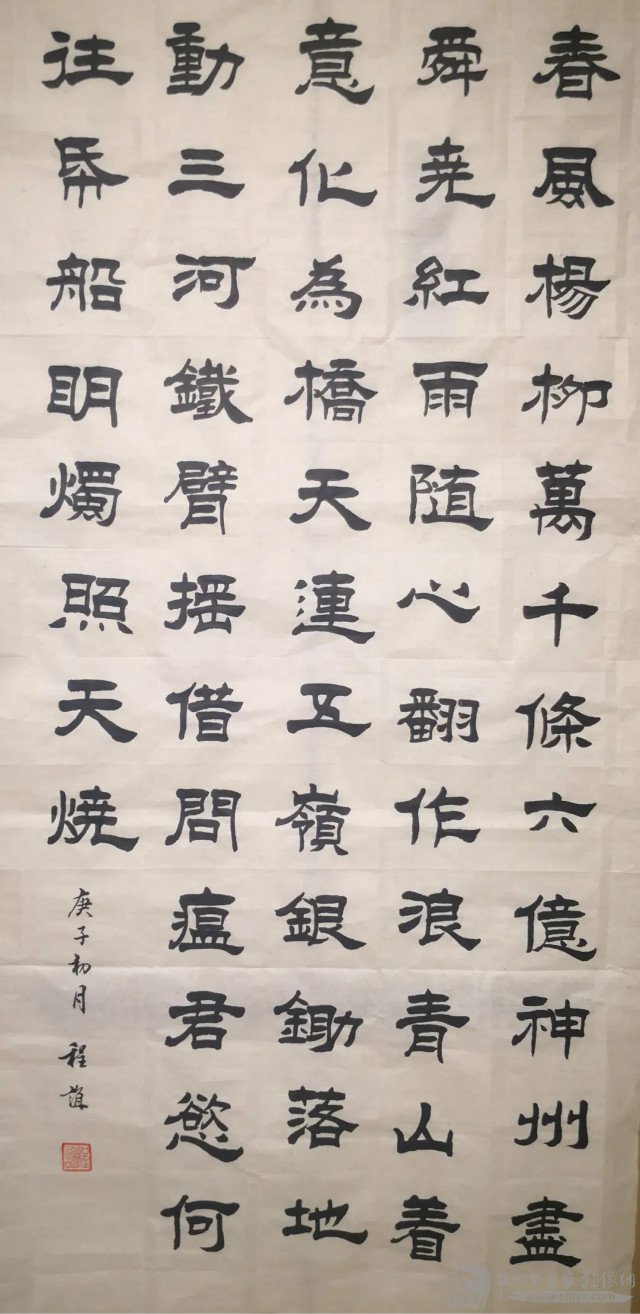 春風楊柳萬千條六億神州盡
舜尭紅雨随心翻作浪青山着
意化為橋天連五嶺銀鋤落地
動三河鐵臂揺借問瘟君慾何
往帋船明燭照天燒
庚子初月 程
china-shjyx.com